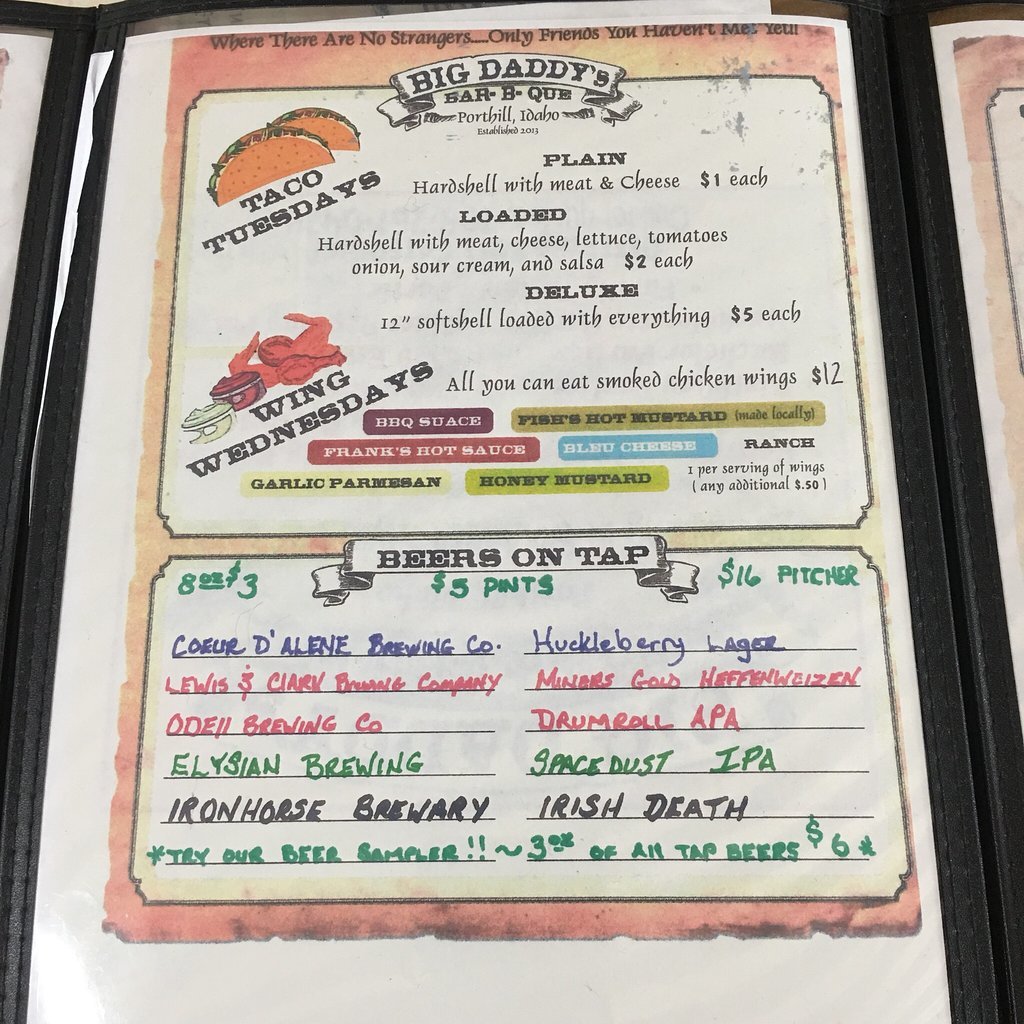 Where There Are No Strangers.....Only Friends You Haven't Met Yet!
BIG DADDY's
BAR-B-QUE
Porthill, Idaho
Established 2013
TACO
TUESDAYS
PLAIN
Hardshell with meat & Cheese $1 each
LOADED
Hardshell with meat, cheese, lettuce, tomatoes
onion, sour cream, and salsa $2 each
DELUXE
12" softshell loaded with everything $5 each
WING
WEDNESDAYS
All you can eat smoked chicken wings $12
BBQ SUACE FISH'S HOT MUSTARD (made locally)
FRANK'S HOT SAUCE BLEU CHEESE RANCH
GARLIC PARMESAN HONEY MUSTARD 1 per serving of wings
( any additional $.50 )
BEERS ON TAP
8oz $3 $5 PINTS $16 PITCHER
COEUR D'ALENE BREWING CO. Huckleberry LAGER
LEWIS & CLARK BREWING COMPANY MINERS GOLD HEFFENWEIZEN
ODELL BREWING CO DRUMROLL APA
ELYSIAN BREWING SPACEDUST IPA
IRONHORSE BREWARY IRISH DEATH
*TRY OUR BEER SAMPLER!! ~ 3oz OF All TAP BEERS $6 *